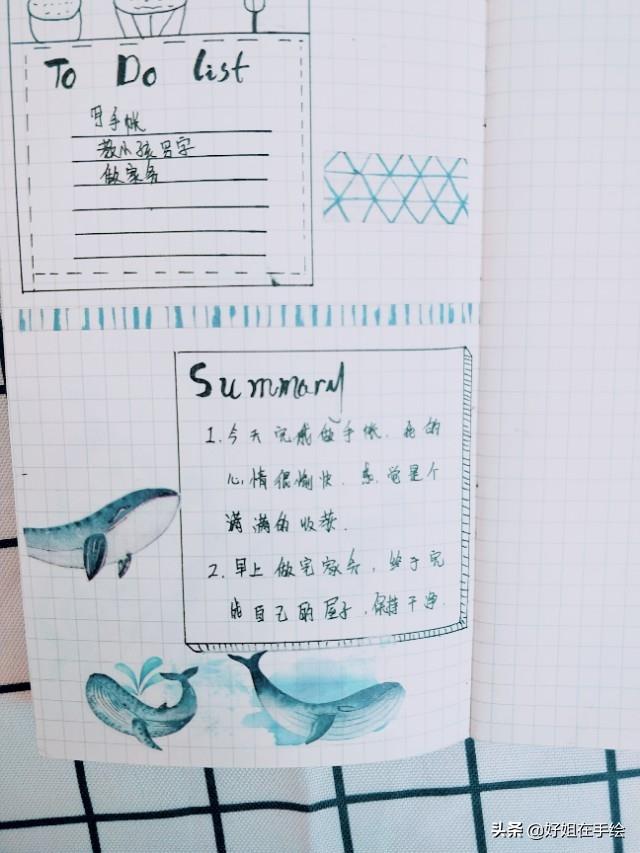 To Do list
写手帐
教小孩写字
做家务
Summary
1.今天完成做手帐.我的
心情很愉快.感觉是个
满满的收获.
2.早上做完家务,终于完
成自己的屋子,保持干净.
头条 @好姐在手绘